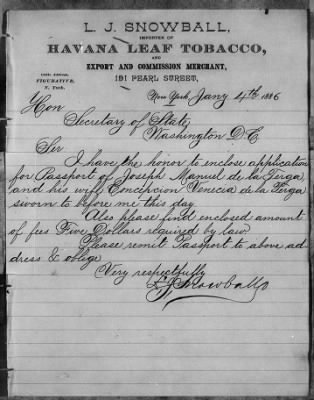 L. J. SNOWBALL,
IMPORTER OF
HAVANA LEAF TOBACCO,
AND
EXPORT AND COMMISSION MERCHANT,
191 PEARL STREET,
CABLE ADDRESS,
FIGURATIVE,
N. York.
New York, Jany 4th 1886
Hon
Secretary of State
Washington D.C.
Sir
I have the honor to enclose application
for Passport of Joseph Manuel de la Torga
and his wife Concepcion Venecia de la Torga
sworn to before me this day
Also please find enclosed amount
of fees Five Dollars required by law
Please remit Passport to above ad
dress & oblige
Very respectfully
L J Snowball